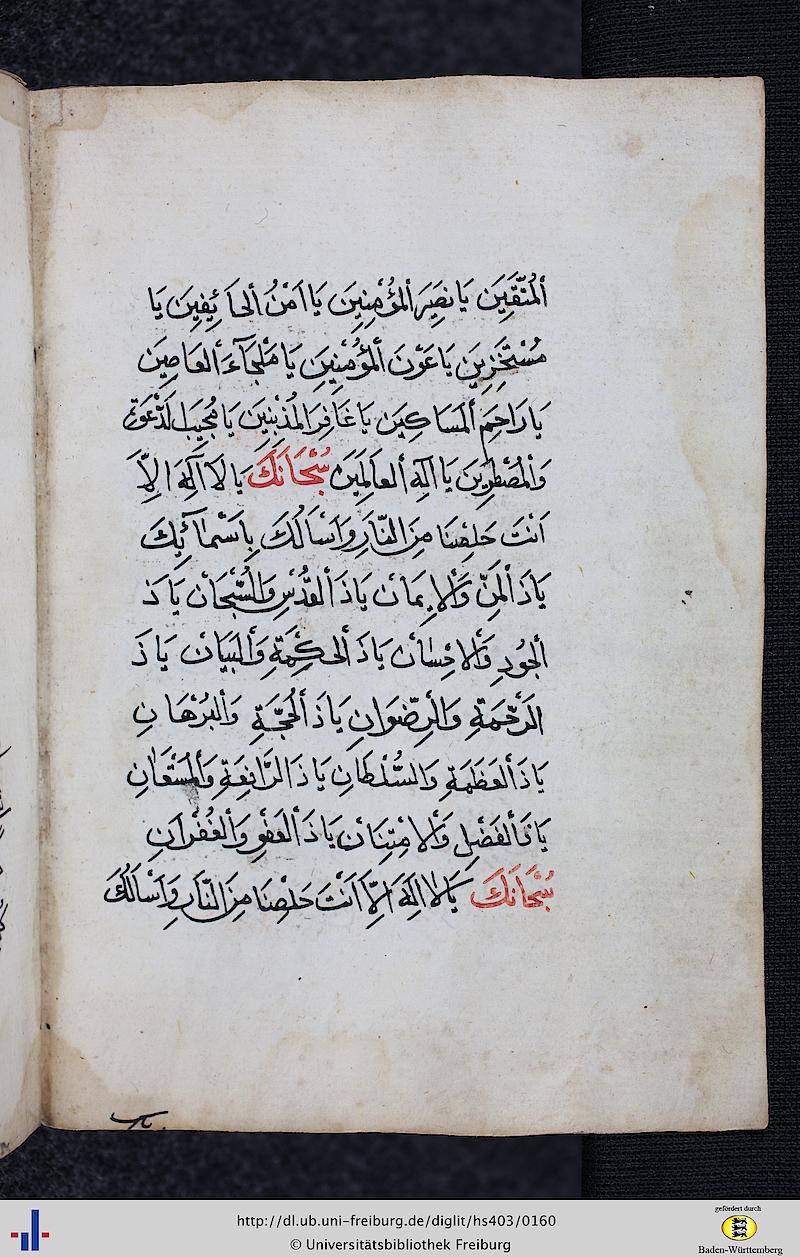 أَلْمُتَّقِينَ يَا نَصِيرَ أَلْمُؤْمِنِينَ يَا اَمْنُ أَلْخَائِفِينَ يَا
يَا عَوْنَ أَلْمُؤْمِنِينَ يَا مَلْجَاءَ أَلْعَاصِينَ
يَا رَاحِمَ أَلْمَسَاكِينَ يَا غَافِرَ الْمُذْنِبِينَ يَا مُجِيبَ
يَا اَلِهَ أَلْعَالَمِينَ سُبْحَانَكَ يَا لَا اَلِهَ اِلاَّ
اَنْتَ خَلِصْنَا مِنَ النَّارِ وَاَسْاَلُكَ بِاَسْمَائِكَ
يَا ذَ أَلْمَنِّ وَأَلْاِيمَانْ يَا ذَ أَلْقُدُّسْ وَالسُّبْحَانْ يَا ذَ
أَلْجُودِ وَأَلْاحْسَانْ يَا ذَ أَلْحِكْمَةِ وَأَلْبَيَانْ يَا ذَ
الرَّحْمَةِ وَالْرِضْوَانِ يَا ذَ أَلْحُجَّةِ وَأَلْبُرْهَانِ
يَا ذَ أَلْعَظَمَةِ وَالسُّلْطَانِ يَا ذَ الرَّافِعَةِ وَأَلْمُسْتَعَانِ
يَا ذَ أَلْفَضْلِ وَأَلْامْتِنَانْ يَا ذَ أَلْعَفْوِ وَأَلْغُفْرَانِ
سُبْحَانَكَ يَا لَا اِلَهَ اِلاَّ اَنْتَ خَلِصْنَا مِنَ النَّارِ وَاَسْاَلُكَ
http://dl.ub.uni-freiburg.de/diglit/hs403/0160
© Universitätsbibliothek Freiburg
gefördert durch
Baden-Württemberg